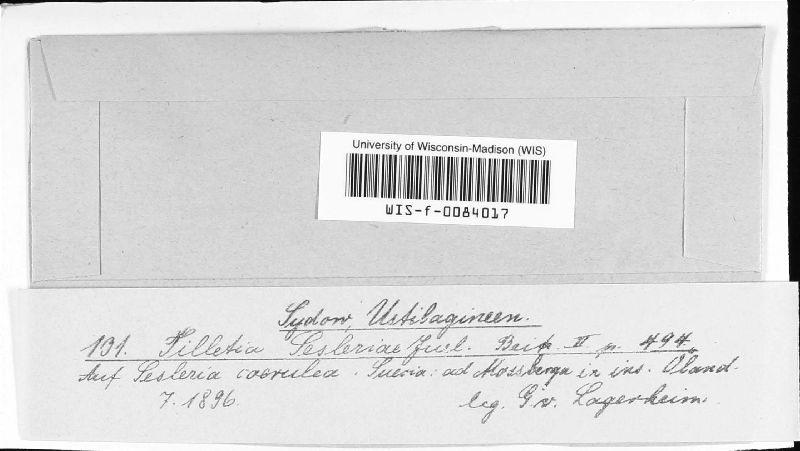 University of Wisconsin-Madison (WIS)
WIS-f-0084017
Sydow, Ustilagineen.
191. Tilletia Sesleriae Juel. Beitr. II p. 494.
Auf Sesleria coerulea. Suecia: ad Mossberga in ins. Öland.
7. 1896. leg. G. v. Lagerheim.